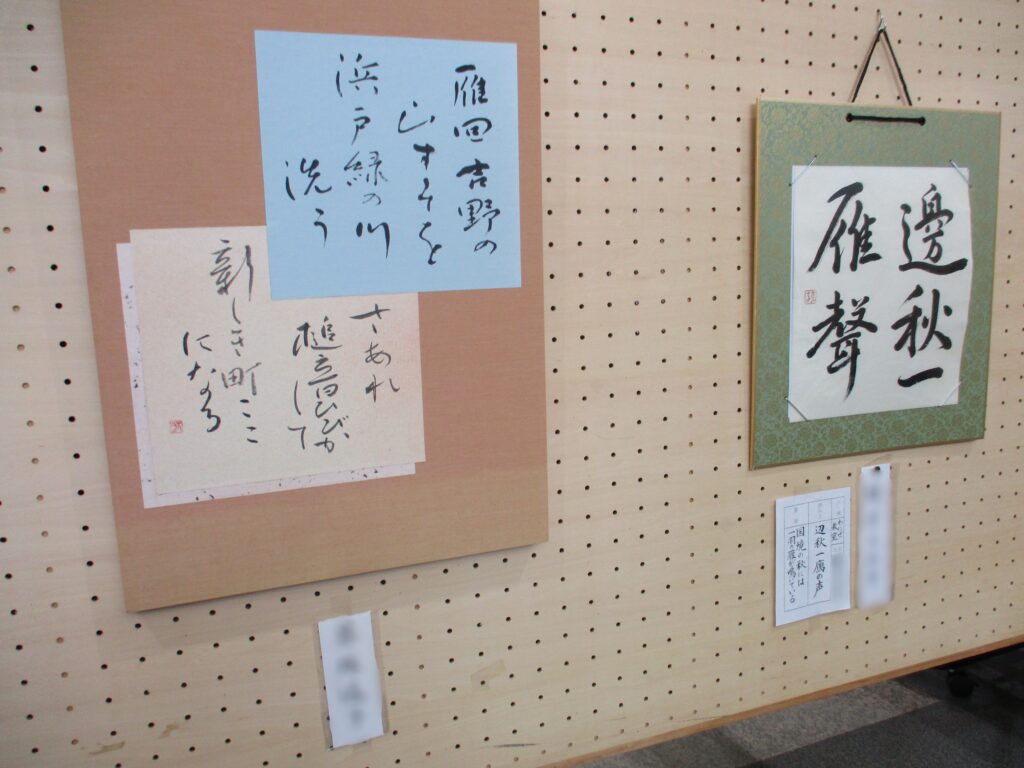 雁回吉野の
山すそを
浜戸緑の川
洗う
さあれ
槌音ひびか
して
新しき町ここ
になる
邊秋一
雁聲
辺秋一鴈の声
国境の秋には
一羽雁が鳴いている